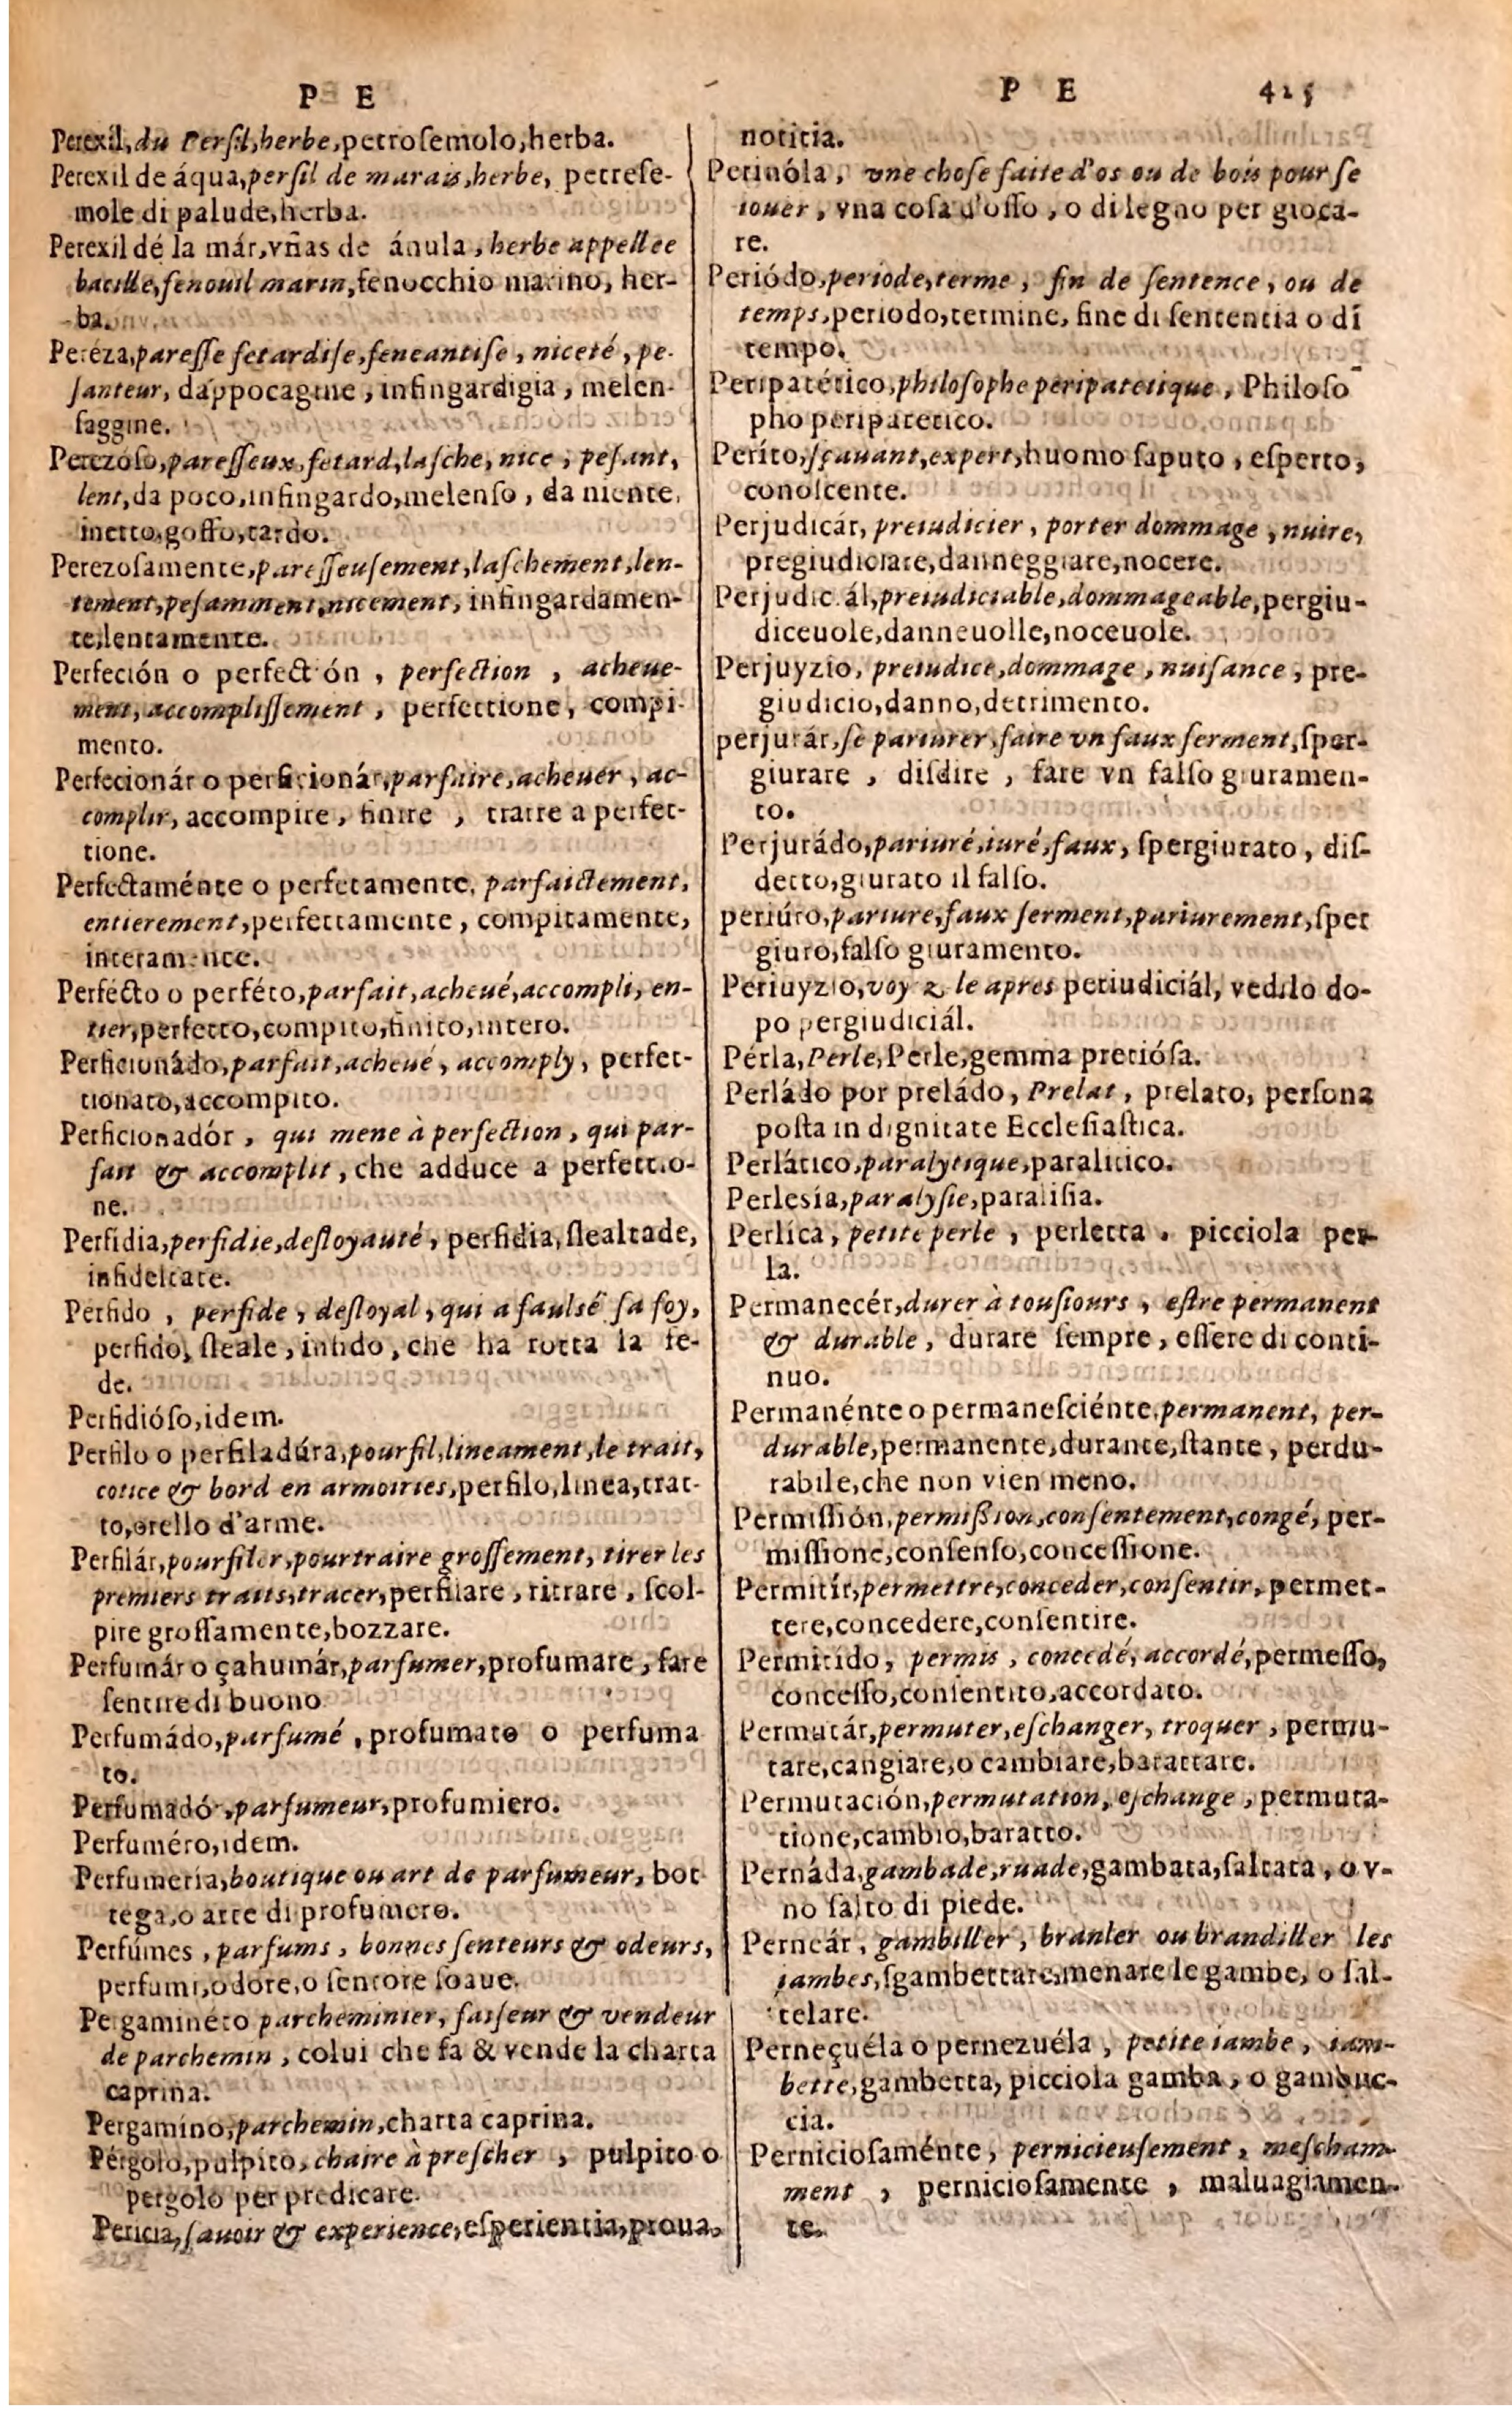 P E
Perexíl, du Persil, herbe, petrosemolo, herba.
Perexil de áqua, persil de marais, herbe, petrese-
mole di palude, herba.
Perexil dé la már, vñas de ánula, herbe appellee
bacille, fenouil marin, fenocchio marino, her-
ba.
Peréza, paresse fetardise, feneantise, niceté, pe-
santeur, dappocagine, infingardigia, melen-
saggine.
Perezóso, paresseux, fetard, lasche, nice, pesant,
lent, da poco, infingardo, melenso, da niente,
inetto, goffo, tardo.
Perezosamente, paresseusement, laschement, len-
tement, pesamment, nicement, infingardamen-
te, lentamente.
Perfeción o perfectión, perfection, acheue-
ment, accomplissement, perfettione, compi-
mento.
Perfecionár o perficionár, parfaire, acheuer, ac-
complir, accompire, finire, trarre a perfet-
tione.
Perfectaménte o perfetamente, parfaictement,
entierement, perfettamente, compitamente,
interamente.
Perfécto o perféto, parfait, acheué, accompli, en-
tier, perfetto, compito, finito, intero.
Perficionádo, parfait, acheué, accomply, perfet-
tionato, accompito.
Perficionadór, qui mene à perfection, qui par-
fait & accomplit, che adduce a perfettio-
ne.
Perfídia, perfidie, desloyauté, perfidia, slealtade,
infideltate.
Perfido, perfide, desloyal, qui a faulsé sa foy,
perfido, sleale, infido, che ha rotta la fe-
de.
Perfidióso, idem.
Perfilo o perfiladúra, pourfil, lineament, le trait,
cotice & bord en armoiries, perfilo, linea, trat-
to, orello d'arme.
Perfilár, pourfiler, pourtraire grossement, tirer les
premiers traits, tracer, perfilare, ritrare, scol-
pire grossamente, bozzare.
Perfumár o çahumár, parfumer, profumare, fare
sentire di buono
Perfumádo, parfumé, profumato o perfuma
to.
Perfumadór, parfumeur, profumiero.
Perfuméro, idem.
Perfumería, boutique ou art de parfumeur, bot
tega, o arte di profumero.
Perfúmes, parfums, bonnes senteurs & odeurs,
perfumi, odore, o sentore soaue.
Pergaminéro parcheminier, faiseur & vendeur
de parchemin, colui che fa & vende la charta
caprina.
Pergamíno, parchemin, charta caprina.
Pérgolo, pulpito, chaire à prescher, pulpito o
pergolo per predicare.
Pericia, sauoir & experience, esperientia, proua,
P E 415
noticia.
Perinóla, vne chose faite d'os ou de bois pour se
iouer, vna cosa d'osso, o di legno per gioca-
re.
Periódo, periode, terme, fin de sentence, ou de
temps, periodo, termine, fine di sententia o di
tempo.
Peripatético, philosophe peripatetique, Philoso
pho peripatetico.
Períto, sçauant, expert, huomo saputo, esperto,
conoscente.
Perjudicár, preiudicier, porter dommage, nuire,
pregiudiciare, danneggiare, nocere.
Perjudiciál, preiudiciable, dommageable, pergiu-
diceuole, danneuolle, noceuole.
Perjuyzio, preiudice, dommage, nuisance, pre-
giudicio, danno, detrimento.
perjurár, se pariurer, faire vn faux serment, sper-
giurare, disdire, fare vn falso giuramen-
to.
Perjurádo, pariuré, iuré, faux, spergiurato, dis-
detto, giurato il falso.
periúro, pariure, faux serment, pariurement, sper
giuro, falso giuramento.
Periuyzio, voy z le apres periudiciál, vedilo do-
po pergiudiciál.
Pérla, Perle, Perle, gemma pretiósa.
Perládo por preládo, Prelat, prelato, persona
posta in dignitate Ecclesiastica.
Perlático, paralytique, paralitico.
Perlesía, paralysie, paralisia.
Perlica, petite perle, perletta, picciola per-
la.
Permanecér, durer à tousiours, estre permanent
& durable, durare sempre, essere di conti-
nuo.
Permanénte o permanesciénte, permanent, per-
durable, permanente, durante, stante, perdu-
rabile, che non vien meno.
Permissión, permission, consentement, congé, per-
missione, consenso, concessione.
Permitír, permettre, conceder, consentir, permet-
tere, concedere, consentire.
Permitído, permis, concedé, accordé, permesso,
concesso, consentito, accordato.
Permutár, permuter, eschanger, troquer, permu-
tare, cangiare, o cambiare, barattare.
Permutación, permutation, eschange, permuta-
tione, cambio, baratto.
Pernáda, gambade, ruade, gambata, saltata, o v-
no salto di piede.
Perneár, gambiller, branler ou brandiller les
iambes, sgambettare, menare le gambe, o sal-
telare.
Perneçuéla o pernezuéla, petite iambe, iam-
bette, gambetta, picciola gamba, o gambuc-
cia.
Perniciosaménte, pernicieusement, mescham-
ment, perniciosamente, maluagiamen-
te.